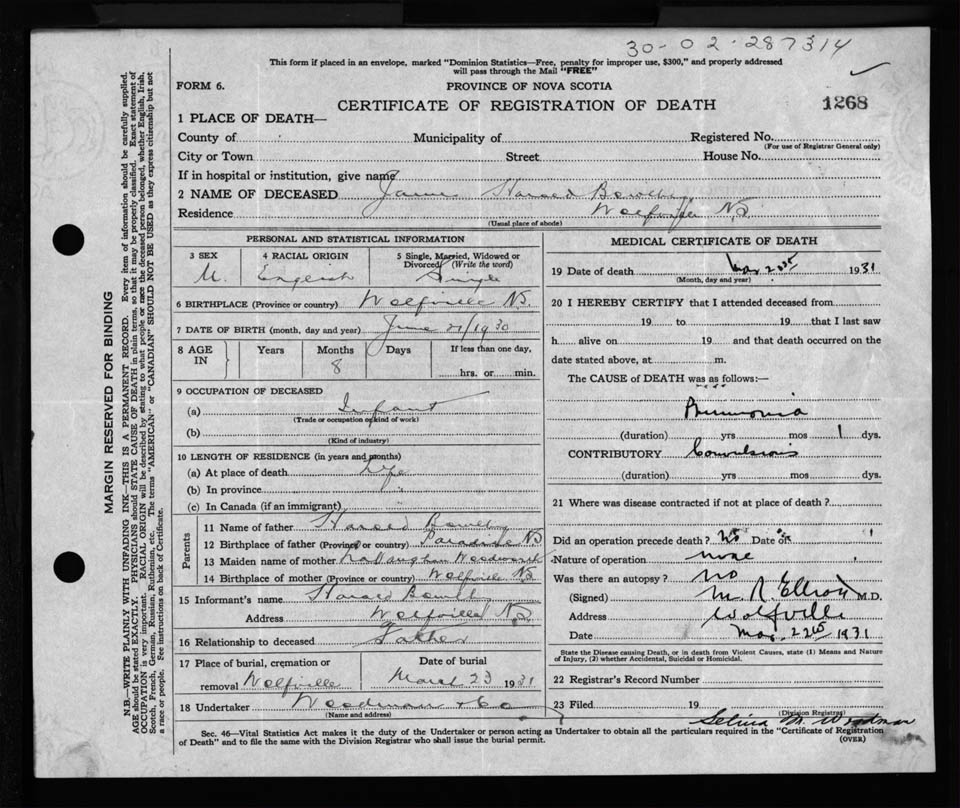 30-02-287314
This form if placed in an envelope, marked "Dominion Statistics—Free, penalty for improper use, $300," and properly addressed
will pass through the Mail "FREE"
FORM 6.
PROVINCE OF NOVA SCOTIA
CERTIFICATE OF REGISTRATION OF DEATH
1268
1 PLACE OF DEATH—
County of Municipality of Registered No.
(For use of Registrar General only)
City or Town Street House No.
If in hospital or institution, give name
2 NAME OF DECEASED James Harold Bowlby
Residence Wolfville NS
(Usual place of abode)
PERSONAL AND STATISTICAL INFORMATION
3 SEX 4 RACIAL ORIGIN 5 Single, Married, Widowed or
Divorced (Write the word)
M. English Single
6 BIRTHPLACE (Province or country) Wolfville NS.
7 DATE OF BIRTH (month, day and year) June 21/1930
8 AGE IN Years Months Days If less than one day,
8 hrs. or min.
9 OCCUPATION OF DECEASED
(a) Infant
(Trade or occupation or kind of work)
(b)
(Kind of industry)
10 LENGTH OF RESIDENCE (in years and months)
(a) At place of death Life
(b) In province "
(c) In Canada (if an immigrant)
Parents
11 Name of father Harold Bowlby
12 Birthplace of father (Province or country) Paradise NS
13 Maiden name of mother Vaughan Woodworth
14 Birthplace of mother (Province or country) Wolfville NS
15 Informant's name Harold Bowlby
Address Wolfville NS
16 Relationship to deceased Father
17 Place of burial, cremation or Date of burial
removal Wolfville March 23 1931
18 Undertaker Woodman & Co
(Name and address)
MEDICAL CERTIFICATE OF DEATH
19 Date of death Mar 1931
(Month, day and year)
20 I HEREBY CERTIFY that I attended deceased from
19 to 19 that I last saw
h alive on 19 and that death occurred on the
date stated above, at m.
The CAUSE of DEATH was as follows:—
Pneumonia
(duration) yrs mos 1 dys.
CONTRIBUTORY Convulsions
(duration) yrs mos dys.
21 Where was disease contracted if not at place of death?
Did an operation precede death? No Date of
Nature of operation none
Was there an autopsy? no
(Signed) M. R. Elliott M.D.
Address Wolfville
Date Mar. 22 1931
State the Disease causing Death, or in death from Violent Causes, state (1) Means and Nature
of Injury, (2) whether Accidental, Suicidal or Homicidal.
22 Registrar's Record Number
23 Filed 19
(Division Registrar)
Selina M. Woodman
Sec. 46—Vital Statistics Act makes it the duty of the Undertaker or person acting as Undertaker to obtain all the particulars required in the "Certificate of Registration
of Death" and to file the same with the Division Registrar who shall issue the burial permit.
(OVER)
MARGIN RESERVED FOR BINDING
N.B.—WRITE PLAINLY WITH UNFADING INK—THIS IS A PERMANENT RECORD. Every item of information should be carefully supplied.
AGE should be stated EXACTLY. PHYSICIANS should STATE CAUSE OF DEATH in plain terms, so that it may be properly classified. Exact statement of
OCCUPATION is very important. RACIAL ORIGIN will be described by stating to what people or race the deceased person belonged, whether English, Irish,
Scotch, French, German, Russian, Ruthenian, etc. The terms "AMERICAN" or "CANADIAN" SHOULD NOT BE USED as they express citizenship but not
a race or people. See instructions on back of Certificate.